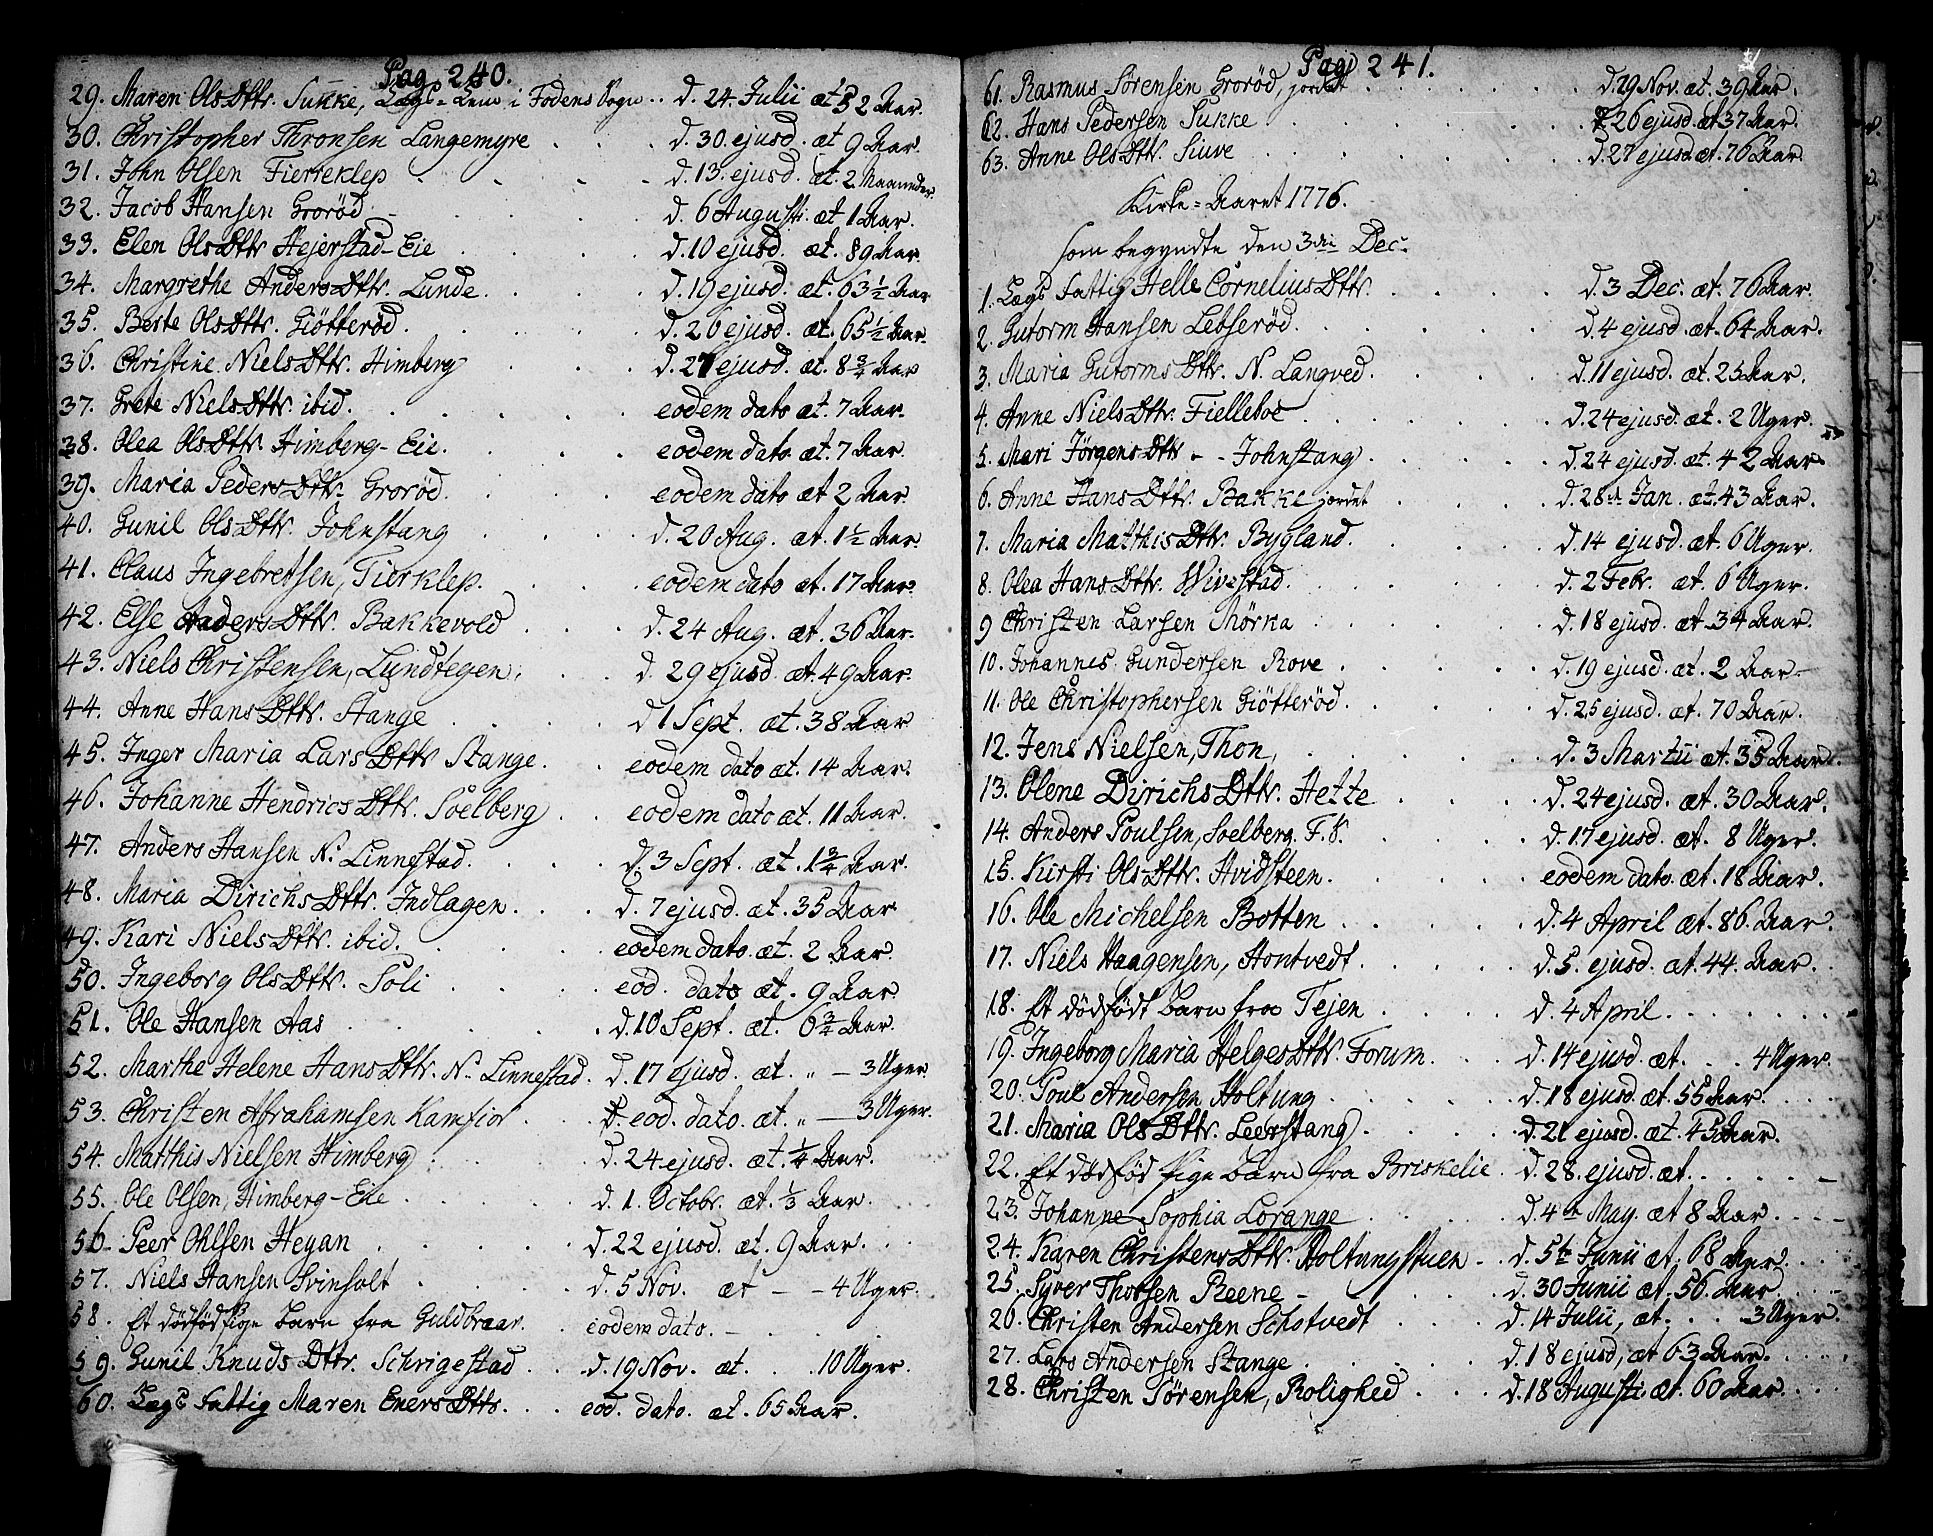 Pag. 240.
29. Maren OlsDttr. Sukke, Lægs-Lem i Fodens Sogn .. d. 24 Julii æt 52 Aar.
30. Christopher Thronsen Langemyre . . . d. 30 ejusd. æt 9 Aar.
31. John Olsen Fierreklep . . . d. 13 ejusd. æt. 2 Maaneder.
32. Jacob Hansen Grorød . . . d. 6 Augusti æt 1 Aar.
33. Elen OlsDttr Hejerstad-Eie . . . d. 10 ejusd. æt. 89 Aar.
34. Margrethe AndersDttr. Lunde . . . d. 19 ejusd. æt. 63 1/2 Aar
35. Berte OlsDttr. Giøtterød . . . d. 26 ejusd. æt. 65 1/2 Aar.
36. Christine NielsDttr. Himberg . . . d. 27 ejusd. æt. 8 3/4 Aar
37. Grete NielsDttr. ibid. . . . eodem dato æt. 7 Aar.
38. Olea OlsDttr. Himberg-Eie. . . . eodem dato æt. 7 Aar.
39. Maria PedersDttr. Grorød. . . . eodem dato æt 2 Aar.
40. Gunil OlsDttr. Johnstang . . . d. 20 Aug. æt. 1 1/2 Aar.
41. Claus Ingebretsen, Fierklep. . . . eodem dato æt. 17 Aar.
42. Else AndersDttr. Bakkevold . . . d. 24 Aug. æt. 36 Aar.
43. Niels Christensen, Lundtegen. . . . d. 29 ejusd. æt. 49 Aar.
44. Anne HansDttr. Stange . . . d 1 Sept. æt. 38 Aar
45. Inger Maria LarsDttr Stange. . . eodem dato æt. 14 Aar.
46. Johanne HendricsDttr. Soelberg . . eodem dato æt. 11 Aar.
47. Anders Hansen N. Linnestad. . . . d. 3 Sept. æt. 1 3/4 Aar.
48. Maria DirichsDttr. Indlagen . . . d. 7 ejusd. æt. 35 Aar
49. Kari NielsDttr. ibid. . . . eodem dato. æt. 2 Aar.
50. Ingeborg OlsDttr. Soli . . . eod. dato æt. 9 Aar
51. Ole Hansen Aas . . . d. 10 Sept. æt. 6 3/4 Aar.
52. Marthe Helene HansDttr. N. Linnestad. d. 17 ejusd. æt. „ — 3 Uger
53. Christen Afrahamsen Kamfior . . . d. eod. dato. æt. „ — 3 Uger.
54. Matthis Nielsen Himberg . . . d. 24 ejusd. æt. 1/4 Aar.
55. Ole Olsen, Himberg-Eie . . . d. 1. Octobr. æt. 1/3 Aar.
56. Peer Ohlsen Heyan . . . d. 22 ejusd. æt. 9 Aar.
57. Niels Hansen Svinholt . . . d. 5 Nov. æt - - 4 Uger.
58. Et dødfød Pige barn fra Guldbraar. . eodem dato. -
59. Gunil KnudsDttr. Schrigestad . . . d. 19 Nov. æt. . . 10 Uger.
60. Lægs fattig Maren EnersDttr. . . . eod. dato. æt. 65 Aar.
Pag 241.
61. Rasmus Sørensen Grorød, jordet . . . d. 29 Nov. æt. 39 Aar.
62. Hans Pedersen Sukke . . . d. 26 ejusd. æt 37 Aar.
63. Anne OlsDttr. Siuve . . . d. 27 ejusd. æt. 76 Aar.
Kirke-Aaret 1776.
som begyndte den 3die Dec.
1. Lægs fattig Helle CorneliusDttr. . . . d. 3 Dec. æt. 76 Aar.
2. Gutorm Hansen Lebserød. . . . d. 4 ejusd. æt. 64 Aar.
3. Maria GutormsDttr. N. Langved. . . . d. 11 ejusd. æt. 25 Aar.
4. Anne NielsDttr. Fielleboe . . . d. 24 ejusd. æt. 2 Uger.
5. Mari JørgensDttr - - Johnstang . . . d. 24 ejusd. æt. 42 Aar.
6. Anne HansDttr. Bakke jordet . . . d. 28de Jan. æt. 43 Aar.
7. Maria MatthisDttr. Bygland. . . . d. 14 ejusd. æt. 6 Uger.
8. Olea HansDttr. Wivestad. . . . d. 2 Febr. æt. 6 Uger.
9 Christen Larsen Mørka . . . d. 18 ejusd. æt. 34 Aar.
10. Johannes Gundersen Rove . . . d. 19 ejusd. æt. 2 Aar-
11. Ole Christophersen Giøtterød. . . . d. 25 ejusd. æt. 70 Aar.
12. Jens Nielsen, Thon, . . . d. 3 Martii æt. 35 Aar.
13. Olene DirichsDttr. Hette . . . d. 24 ejusd. æt. 30 Aar.
14. Anders Poulsen, Soelberg. F.K. . . . d. 17 ejusd. æt. 8 Uger.
15. Kirsti OlsDttr. Hvidsteen. . . . eodem dato. æt. 18 Aar.
16. Ole Michelsen Botten . . . d. 4 April æt. 86. Aar.
17. Niels Haagensen, Hontvedt . . . d. 5. ejusd. æt. 44. Aar.
18. Et dødfødt barn fra Tejen . . . d. 4 April. . . .
19. Ingeborg Maria HelgesDttr. Forum. . . d. 14 ejusd. æt. . . 4 Uger.
20. Poul Andersen Holtung . . . d. 18 ejusd. æt. 55 Aar.
21. Maria OlsDttr. Leerstang . . . d. 21 ejusd. æt. 45 Aar.
22. Et dødfød Pige barn fra Briskelie . d. 28. ejusd. æt. . . .
23. Johanne Sophia Lorange . . . d. 4de May. æt 8 Aar.
24. Karen ChristensDttr. Holtungstuen . . d. 5te Junii æt. 68 Aar.
25. Syver Thorsen Reene - . . . d. 30 Junii æt. 56. Aar
26. Christen Andersen Schotvedt . . . d. 14 Julii, æt. . . 3 Uger.
27. Lars Andersen Stange . . . d. 18 ejusd, æt 63 Aar.
28. Christen Sørensen, Rolighed . . . d. 18 Augusti æt. 60 Aar.